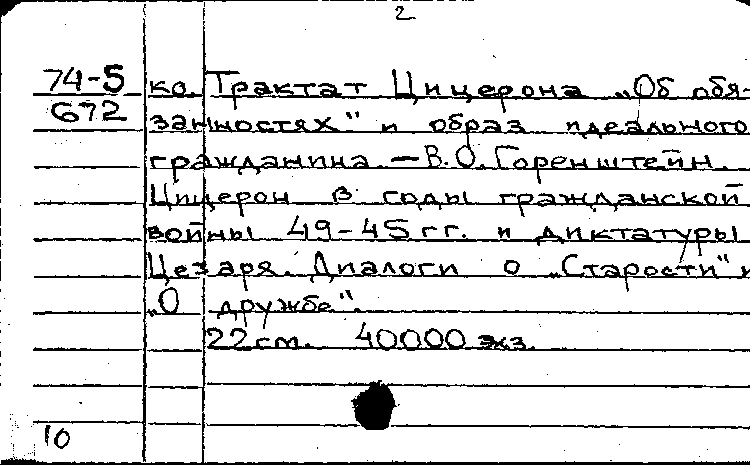 2
74-5 ко. Трактат Цицерона „Об обя-
672 занностях" и образ идеального
гражданина. — В.О. Горенштейн.
Цицерон в годы гражданской
войны 49-45 гг. и диктатуры
Цезаря. Диалоги о „Старости" и
„О дружбе".
22 см. 40000 экз.
10